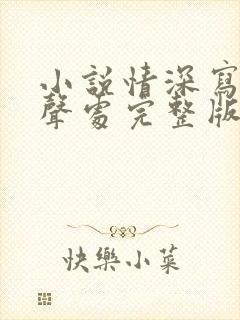 小說情深寫
聲處完整版
快樂小菜